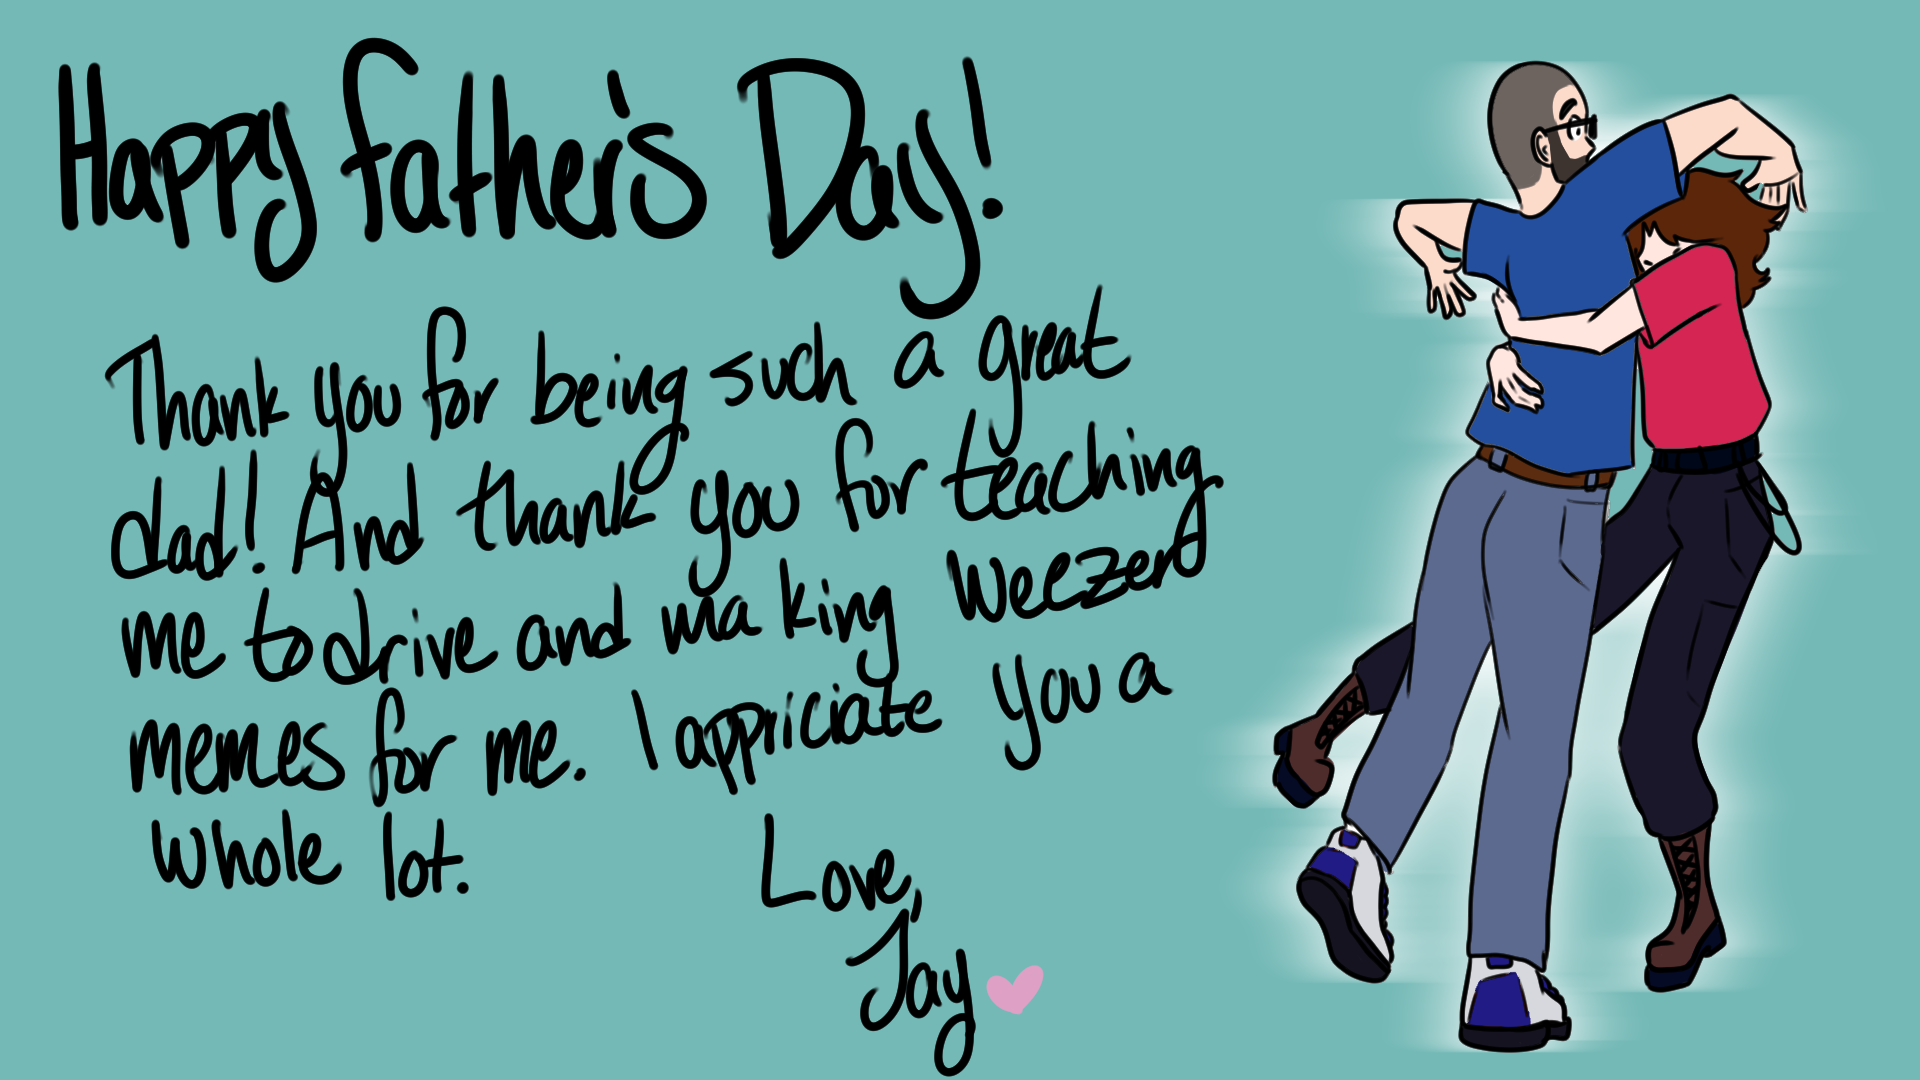 Happy Father's Day!
Thank you for being such a great
dad! And thank you for teaching
me to drive and making Weezer
memes for me. I appriciate you a
whole lot.
Love,
Jay